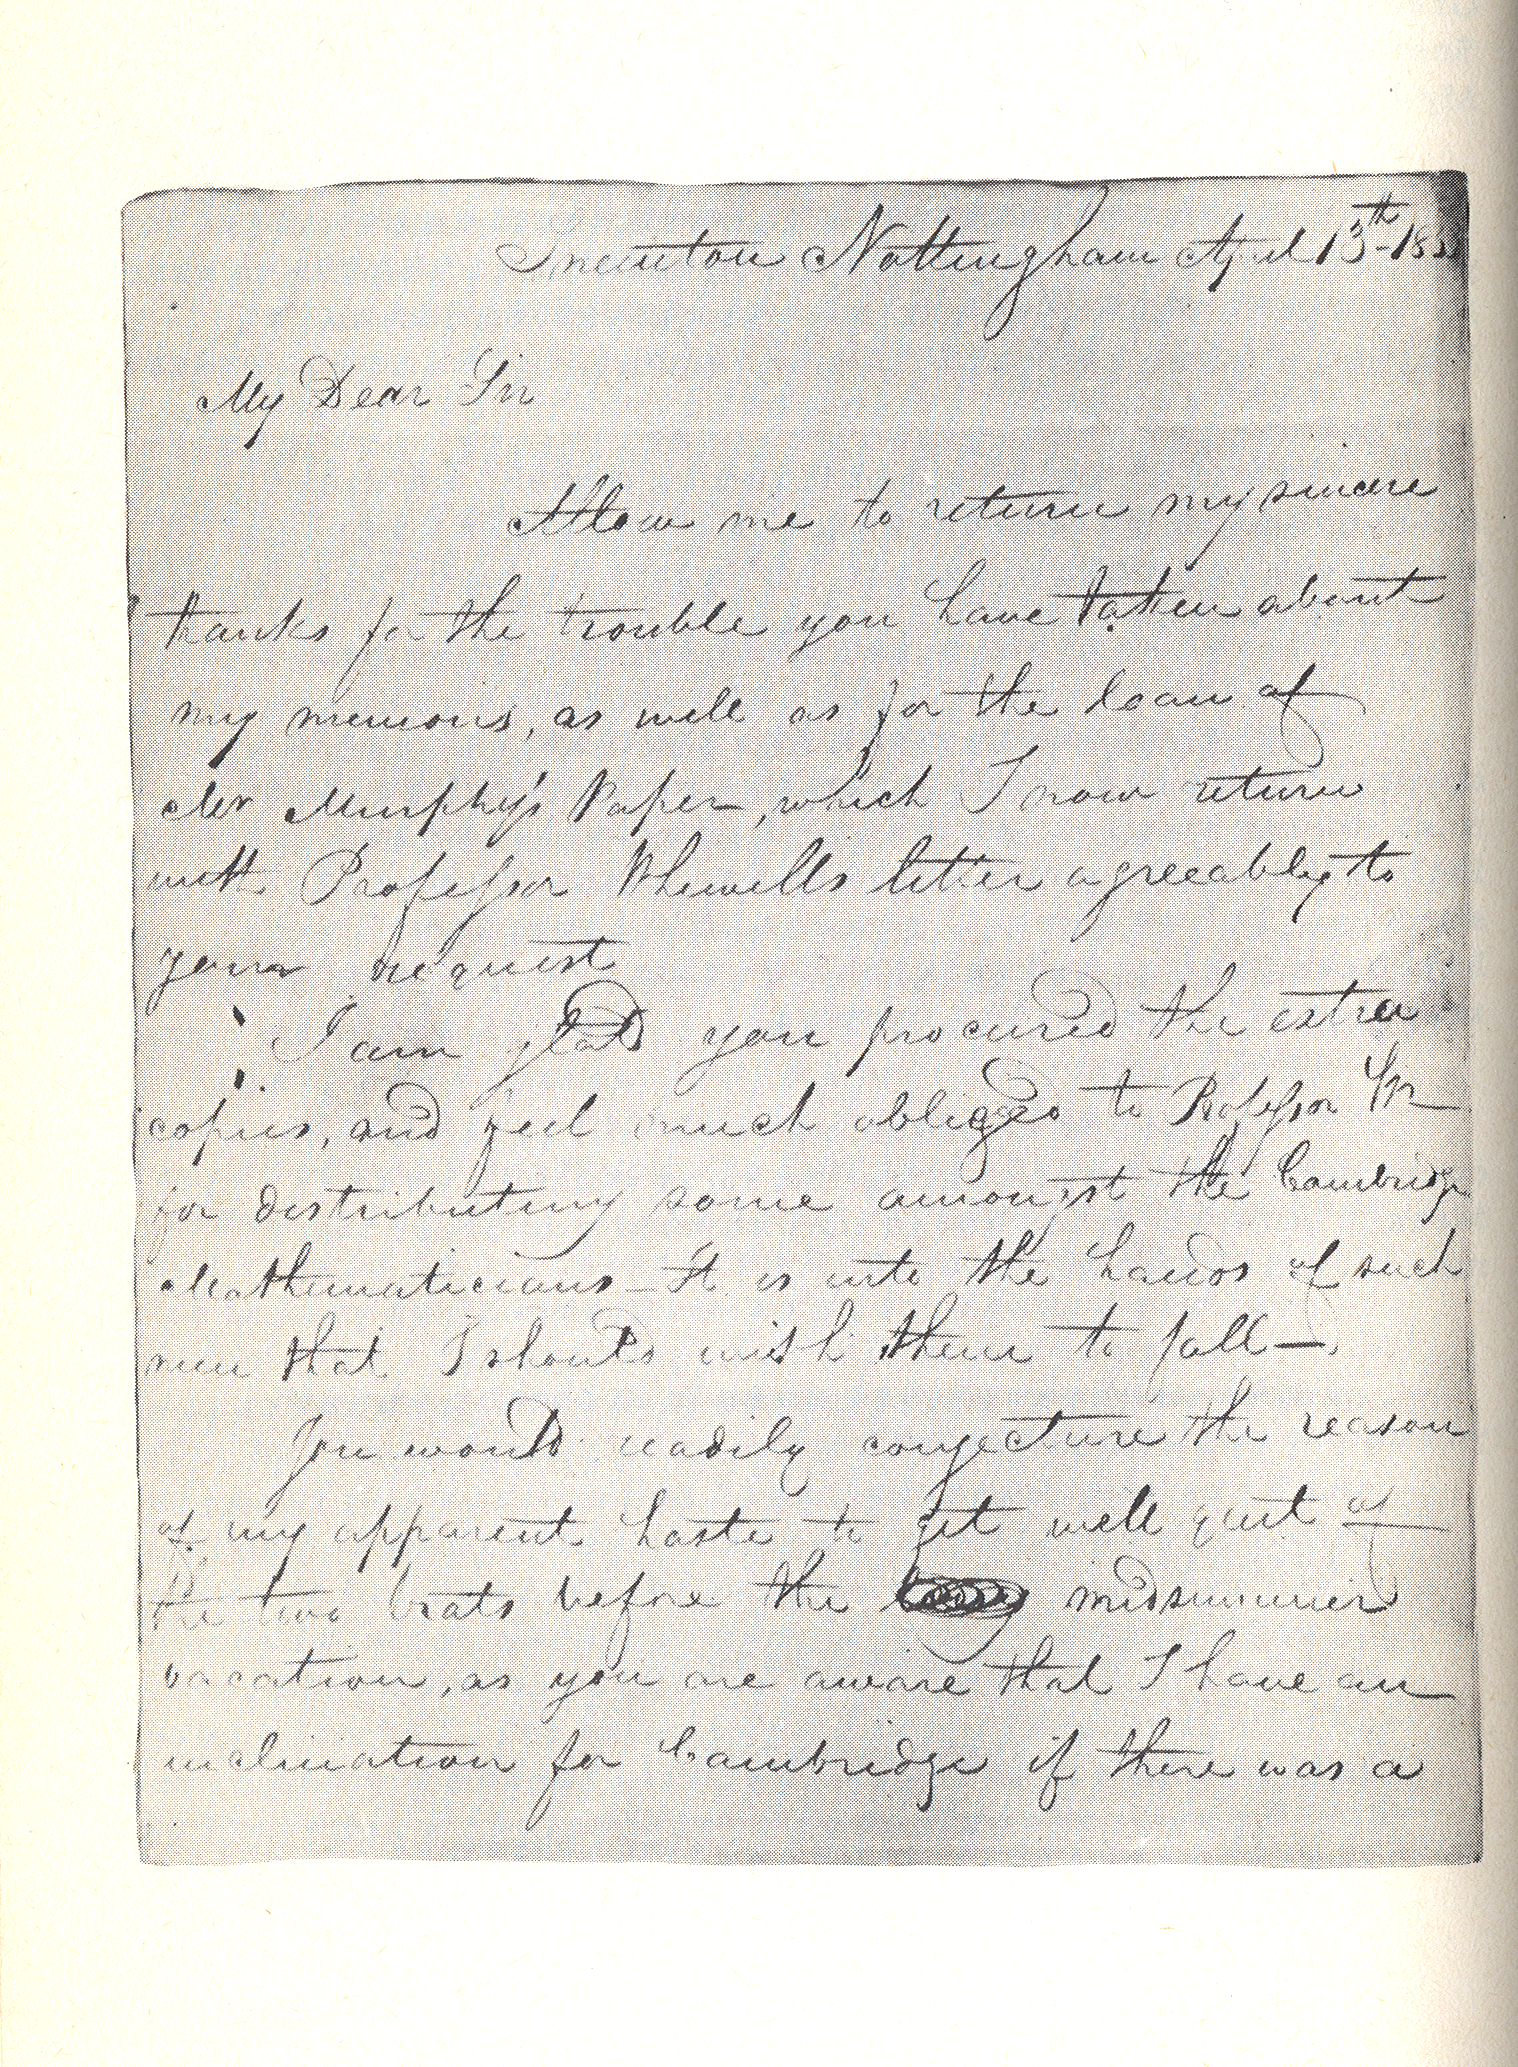 Sneinton Nottingham April 13th 183
My Dear Sir
Allow me to return my sincere
thanks for the trouble you have taken about
my memoirs, as well as for the loan of
Mr Murphy's Paper, which I now return
with Professor Whewells letter agreeably to
your request
I am glad you procured the extra
copies, and feel much obliged to Professor W
for distributing some amongst the Cambridge
Mathematicians - It is into the hands of such
men that I should wish them to fall —
You would readily conjecture the reason
of my apparent haste to get well quit of
the two brats before the midsummer
vacation, as you are aware that I have an
inclination for Cambridge if there was a